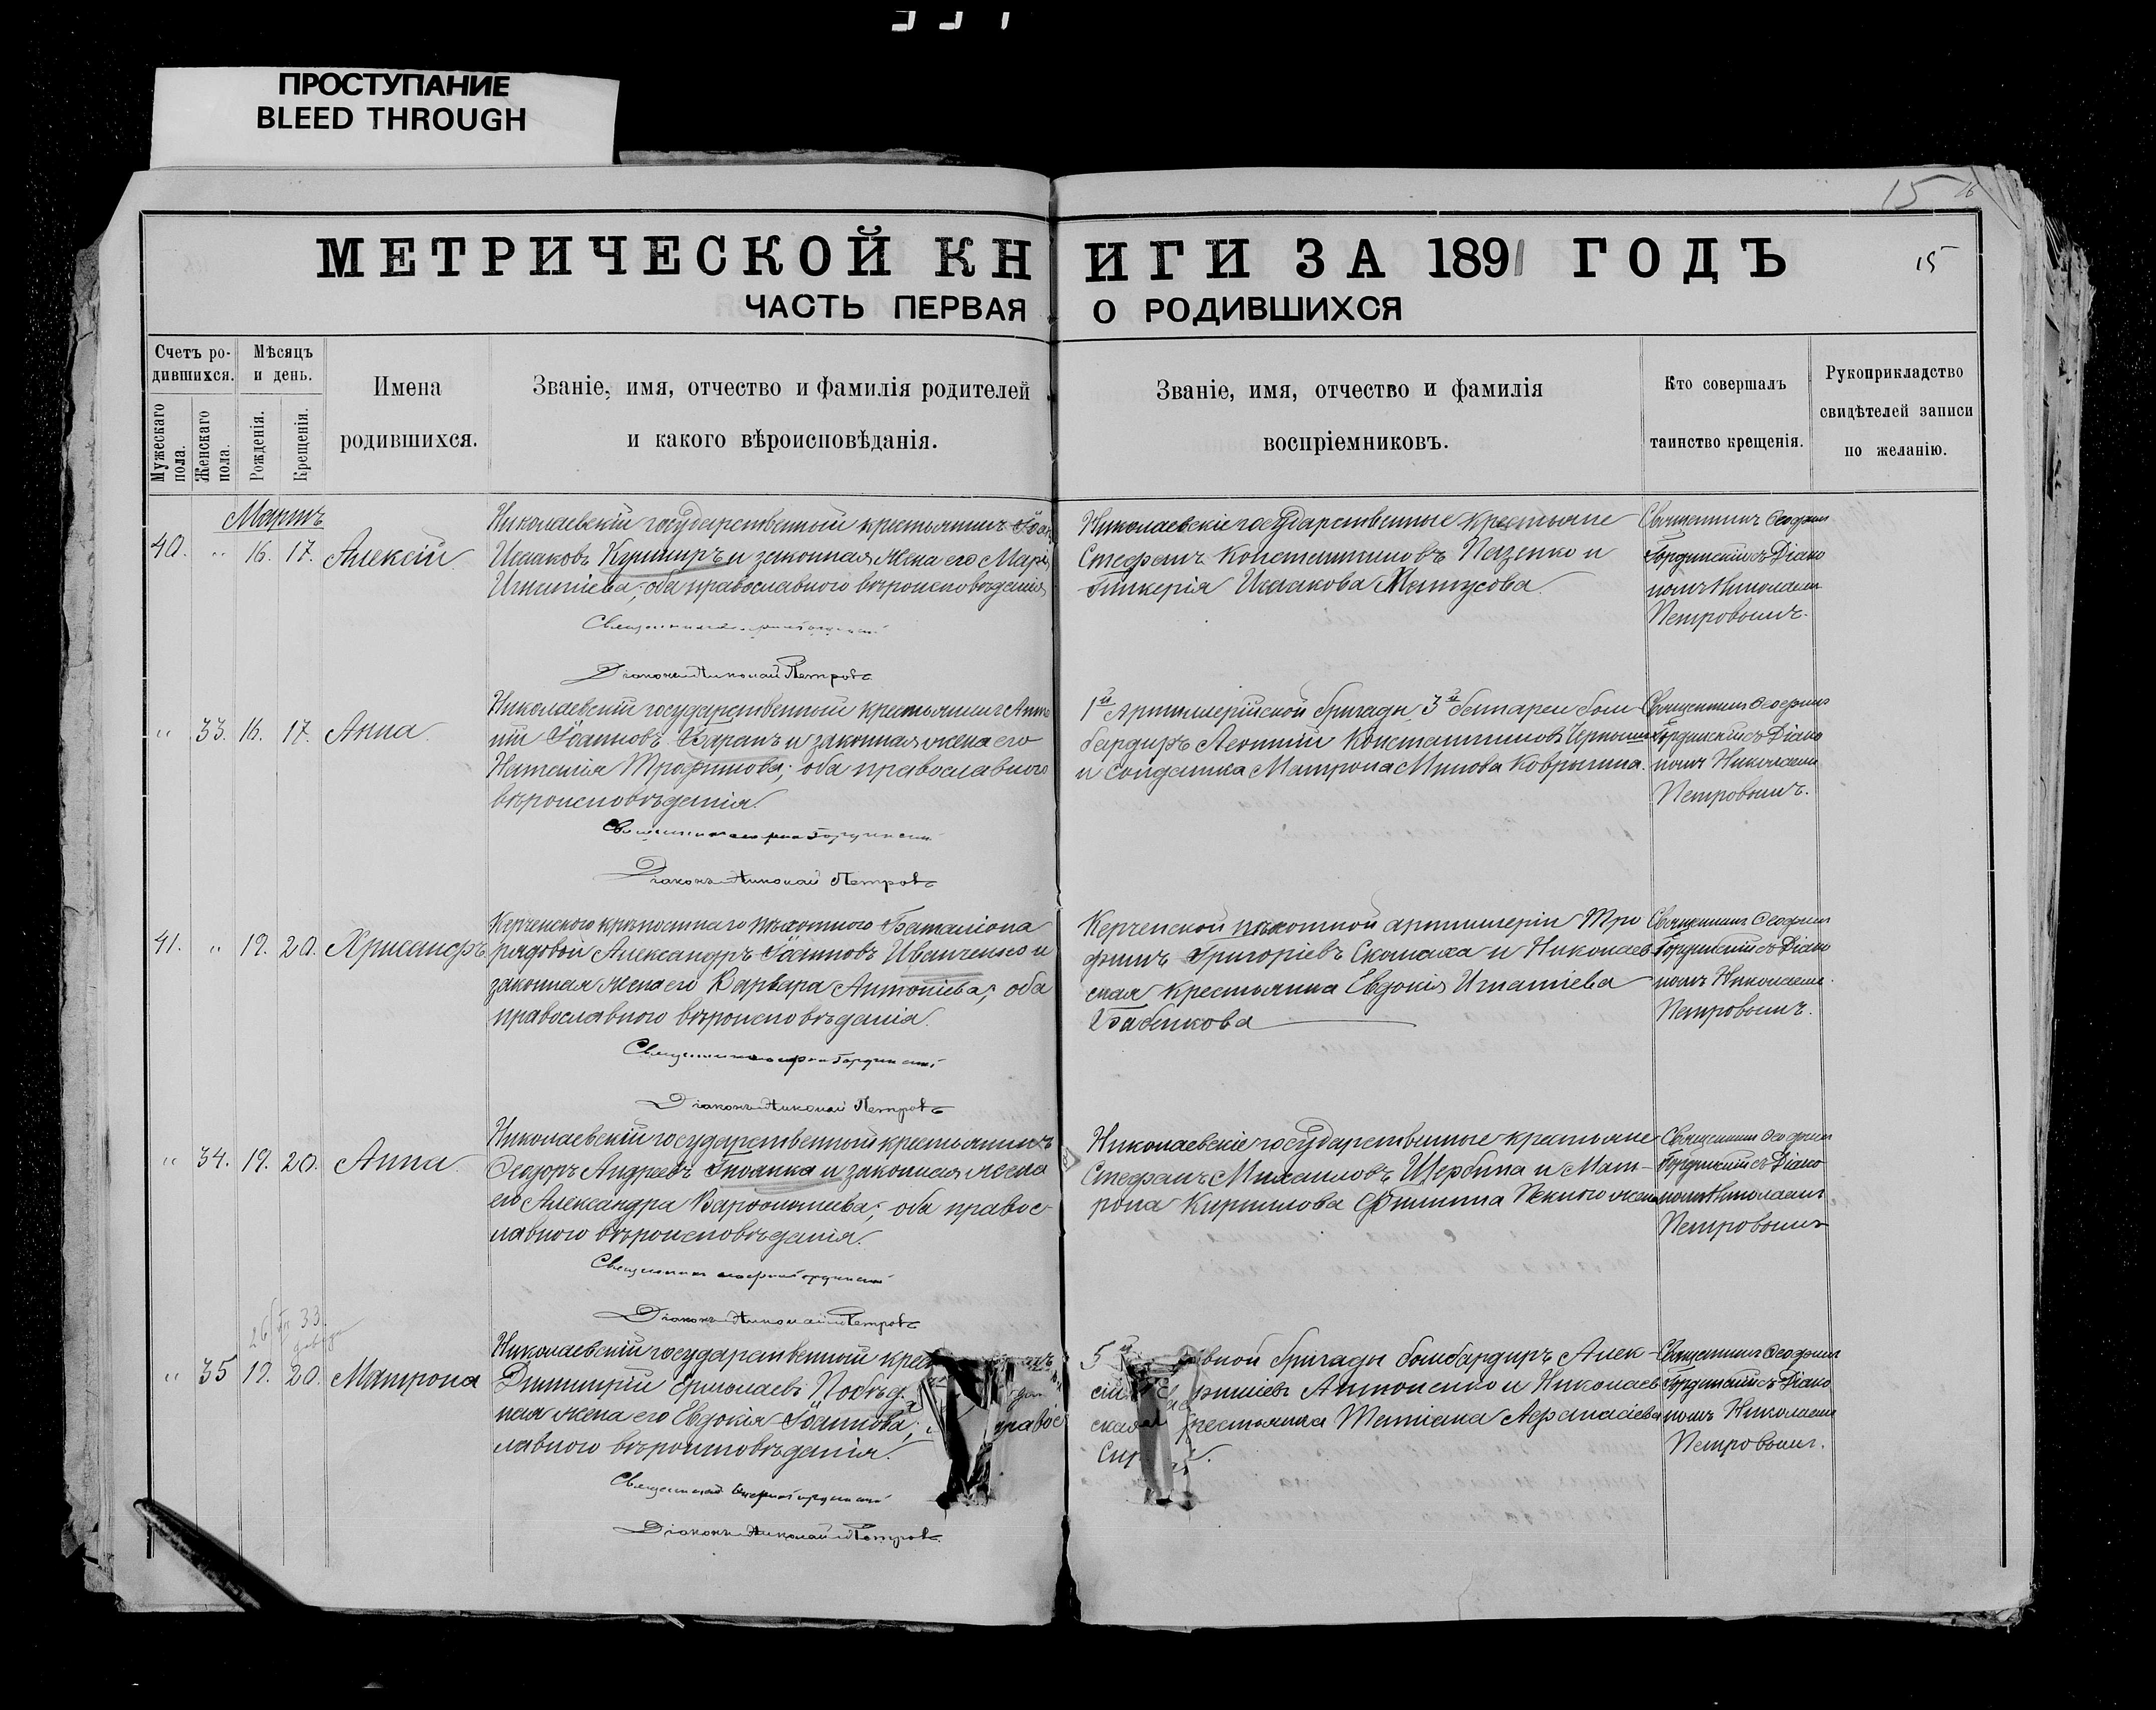 ПРОСТУПАНИЕ
BLEED THROUGH
15
МЕТРИЧЕСКОЙ КНИГИ ЗА 1891 ГОДЪ
15
ЧАСТЬ ПЕРВАЯ О РОДИВШИХСЯ
Счетъ родившихся.
Мужескаго пола.
Женскаго пола.
Мѣсяцъ и день.
Рожденія.
Крещенія.
Имена
родившихся.
Званіе, имя, отчество и фамилія родителей
и какого вѣроисповѣданія.
Званіе, имя, отчество и фамилія
воспріемниковъ.
Кто совершалъ
таинство крещенія.
Рукоприкладство
свидѣтелей записи
по желанію.
Мартъ
40. " 16. 17. Алексій
Николаевскій государственный крестьянинъ
Исааковъ Кушниръ и законная жена его Марія
Игнатіева; оба православнаго вѣроисповѣданія
Діаконъ Николай Петровъ
Николаевскіе государственные крестьяне
Стефанъ Константиновъ Пазенко и
Гликерія Исаакова Матусова.
Священникъ
Гординскій съ Діако
номъ Николаемъ
Петровымъ.
" 33. 16. 17. Анна
Николаевскій государственный крестьянинъ Анто
ній Іоанновъ Баранъ и законная жена его
Наталія Трофимова; оба православнаго
вѣроисповѣданія.
Діаконъ Николай Петровъ
1й Артиллерійской бригады 3й батареи бом
бардиръ Леонтій Константиновъ
и солдатка Матрона Минова Ковригина.
Священникъ
Гординскій съ Діако
номъ Николаемъ
Петровымъ.
41. " 19. 20. Хрисанфъ
Керченскаго крѣпостнаго пѣхотнаго Баталіона
рядовой Александръ Іоанновъ Иванченко и
законная жена его Варвара Антоніева; оба
православнаго вѣроисповѣданія.
Діаконъ Николай Петровъ
Керченской артиллеріи Тро
фимъ Григоріевъ и Николаев
ская крестьянка Евдокія Игнатіева
Бабенкова
Священникъ
Гординскій съ Діако
номъ Николаемъ
Петровымъ.
" 34. 19. 20. Анна
Николаевскій государственный крестьянинъ
Ѳеодоръ Андреевъ и законная жена
его Александра Варѳоломеева; оба правос
лавнаго вѣроисповѣданія.
Діаконъ Николай Петровъ
Николаевскіе государственные крестьяне
Стефанъ Михаиловъ Щербина и Мат-
рона Кириллова
Священникъ
Гординскій съ Діако
номъ Николаемъ
Петровымъ
" 35 19. 20. Матрона
Николаевскій государственный
Димитрій Ермолаевъ
ная жена его Евдокія Іоаннова; правос
лавнаго вѣроисповѣданія.
Діаконъ Николай Петровъ
5й бригады бомбардиръ Алек-
сій Антоненко и Николаев
ская крестьянка Татіана Аѳанасіева
Священникъ
Гординскій съ Діако
номъ Николаемъ
Петровымъ.